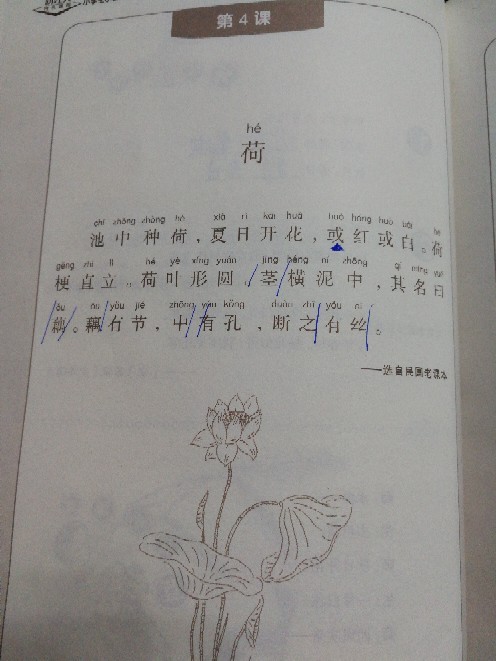 第4课
hé
荷
chí zhōng zhòng hé xià rì kāi huā huò hóng huò bái hé
池中种荷，夏日开花，或红或白。荷
gěng zhí lì hé yè xíng yuán jīng héng ní zhōng qí míng yuē
梗直立。荷叶形圆，茎横泥中，其名曰
ǒu ǒu yǒu jié zhōng yǒu kǒng duàn zhī yǒu sī
藕。藕有节，中有孔，断之有丝。
——选自民国老课本